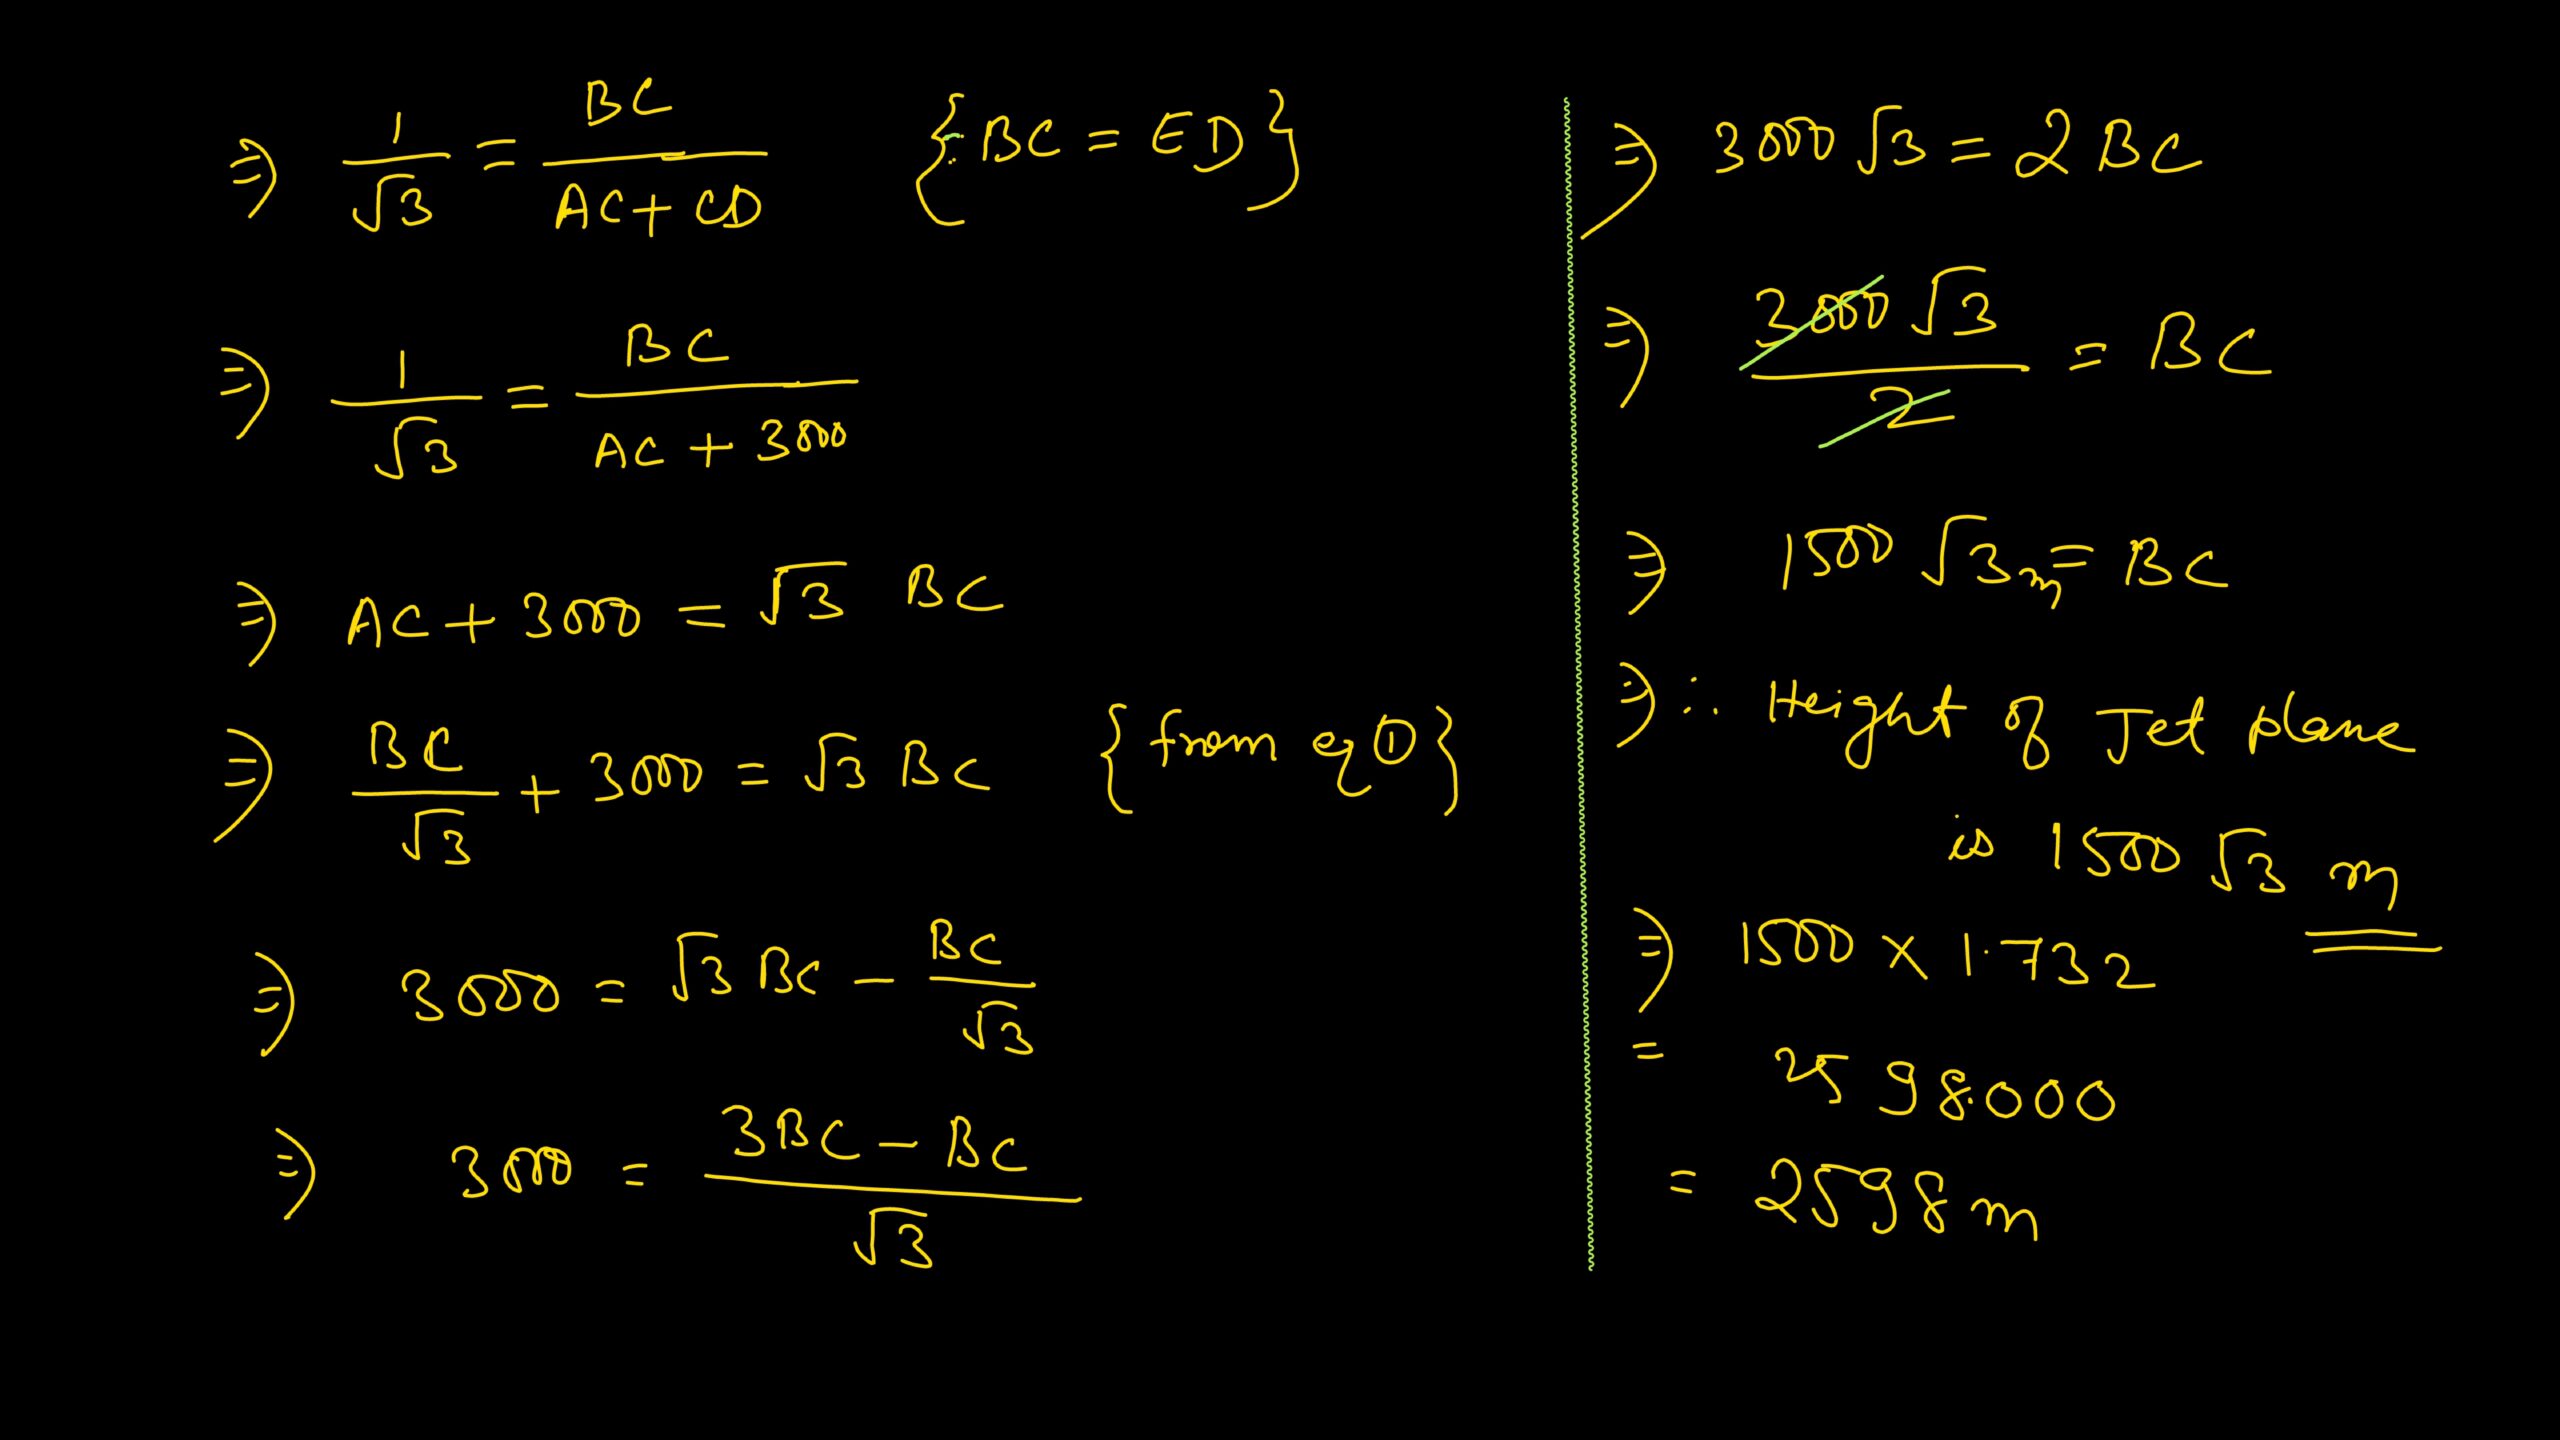 ⇒ 1/√3 = BC/(AC + CD) {∵ BC = ED}
⇒ 1/√3 = BC/(AC + 3000)
⇒ AC + 3000 = √3 BC
⇒ BC/√3 + 3000 = √3 BC {from eq ①}
⇒ 3000 = √3 BC − BC/√3
⇒ 3000 = (3BC − BC)/√3
⇒ 3000 √3 = 2 BC
⇒ 3000 √3/2 = BC
⇒ 1500 √3 m = BC
⇒ ∴ Height of Jet plane
is 1500 √3 m
⇒ 1500 × 1.732
= 2598.000
= 2598 m